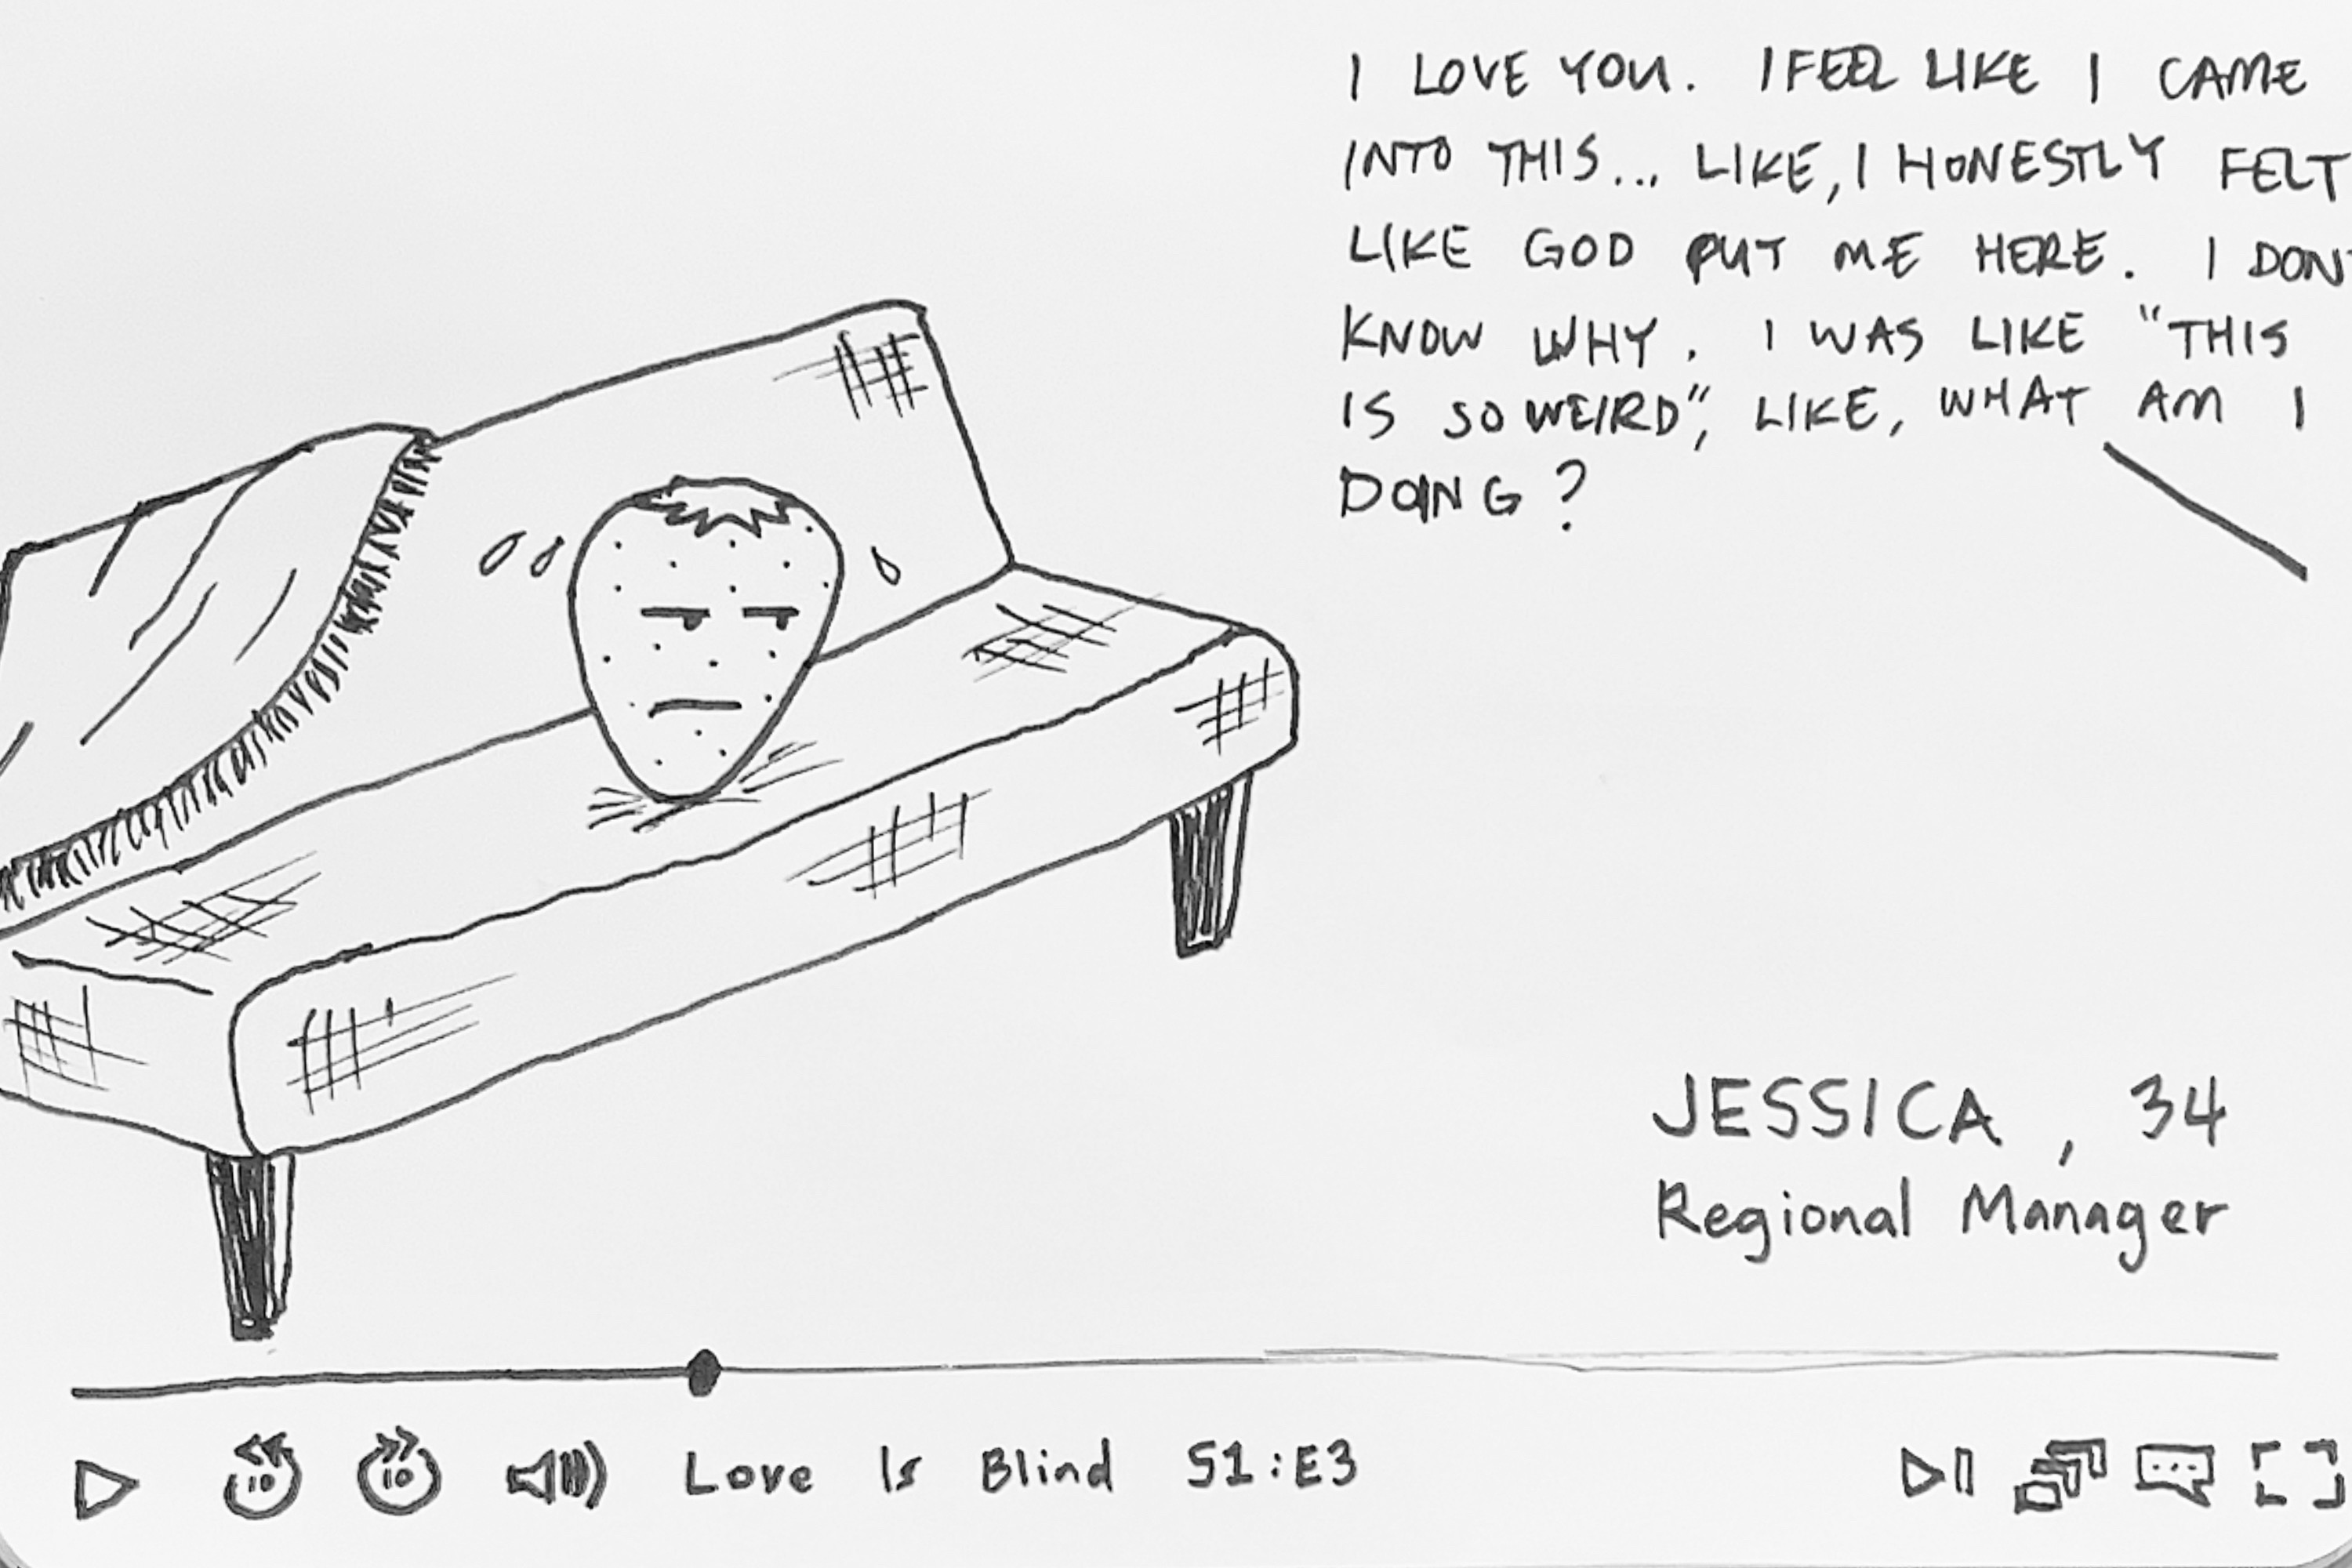 I LOVE YOU. I FEEL LIKE I CAME
INTO THIS... LIKE, I HONESTLY FELT
LIKE GOD PUT ME HERE. I DON'T
KNOW WHY. I WAS LIKE "THIS
IS SO WEIRD", LIKE, WHAT AM I
DOING?
JESSICA, 34
Regional Manager
10
10
Love Is Blind S1:E3